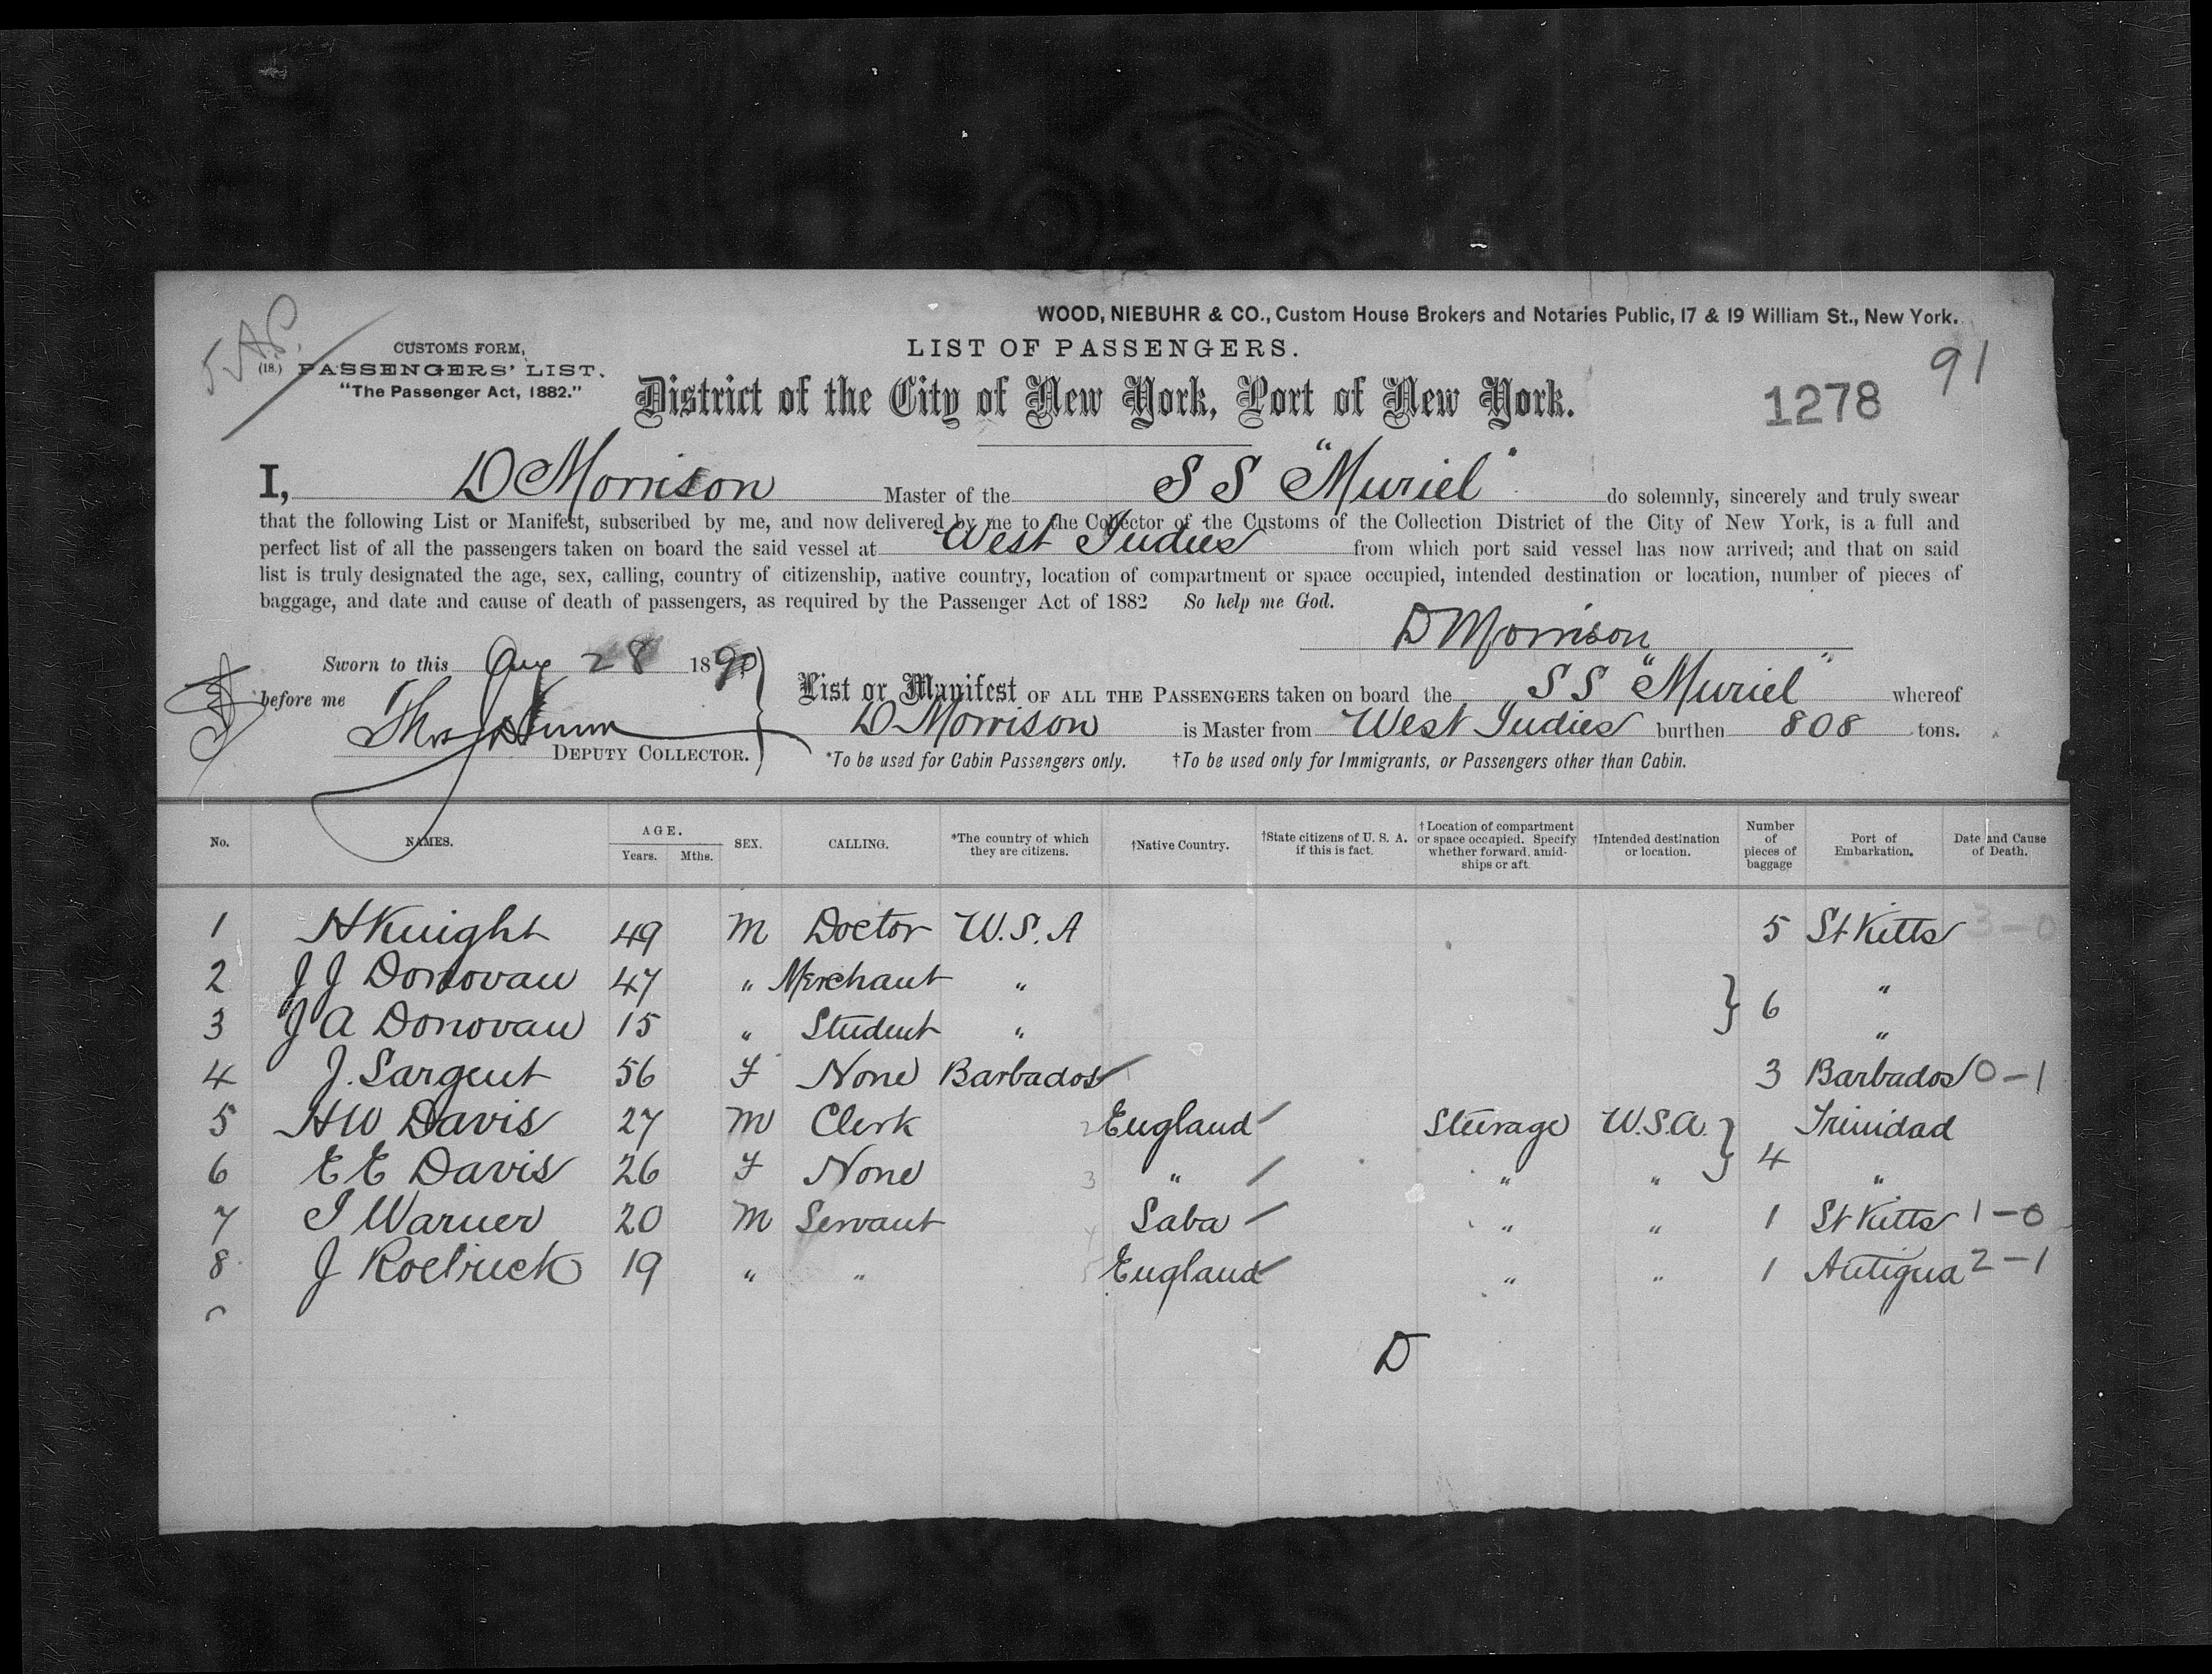 WOOD, NIEBUHR & CO., Custom House Brokers and Notaries Public, 17 & 19 William St., New York.
CUSTOMS FORM,
(18.) PASSENGERS' LIST.
"The Passenger Act, 1882."
LIST OF PASSENGERS.
91
District of the City of New York, Port of New York.
1278
I, D Morrison Master of the S S "Muriel" do solemnly, sincerely and truly swear
that the following List or Manifest, subscribed by me, and now delivered by me to the Collector of the Customs of the Collection District of the City of New York, is a full and
perfect list of all the passengers taken on board the said vessel at West Indies from which port said vessel has now arrived; and that on said
list is truly designated the age, sex, calling, country of citizenship, native country, location of compartment or space occupied, intended destination or location, number of pieces of
baggage, and date and cause of death of passengers, as required by the Passenger Act of 1882 So help me God.
D Morrison
Sworn to this Aug 28 1890
before me
DEPUTY COLLECTOR.
List or Manifest OF ALL THE PASSENGERS taken on board the S S "Muriel" whereof
D Morrison is Master from West Indies burthen 808 tons.
*To be used for Cabin Passengers only. †To be used only for Immigrants, or Passengers other than Cabin.
No. NAMES. AGE. Years. Mths. SEX. CALLING. *The country of which they are citizens. †Native Country. †State citizens of U. S. A. if this is fact. †Location of compartment or space occupied. Specify whether forward, amid-ships or aft. †Intended destination or location. Number of pieces of baggage Port of Embarkation. Date and Cause of Death.
1 H Knight 49 M Doctor U.S.A 5 St Kitts 3-0
2 J J Donovan 47 " Merchant " } 6 "
3 J A Donovan 15 " Student " "
4 J. Sargent 56 F None Barbados 3 Barbados 0-1
5 H W Davis 27 M Clerk 2 England Steerage U.S.A. } 4 Trinidad
6 E E Davis 26 F None 3 " " " "
7 I Warner 20 M Servant 4 Saba " " 1 St Kitts 1-0
8 J Roebuck 19 " " 5 England " " 1 Antigua 2-1
D